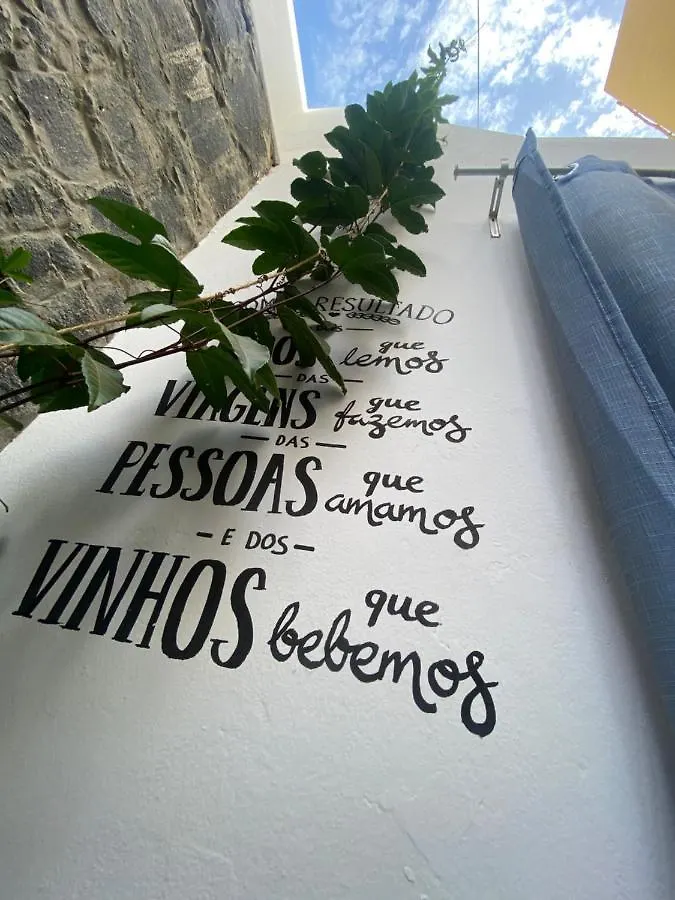 RESULTADO
que lemos
— DAS —
VIAGENS que fazemos
— DAS —
PESSOAS que amamos
— E DOS —
VINHOS que bebemos